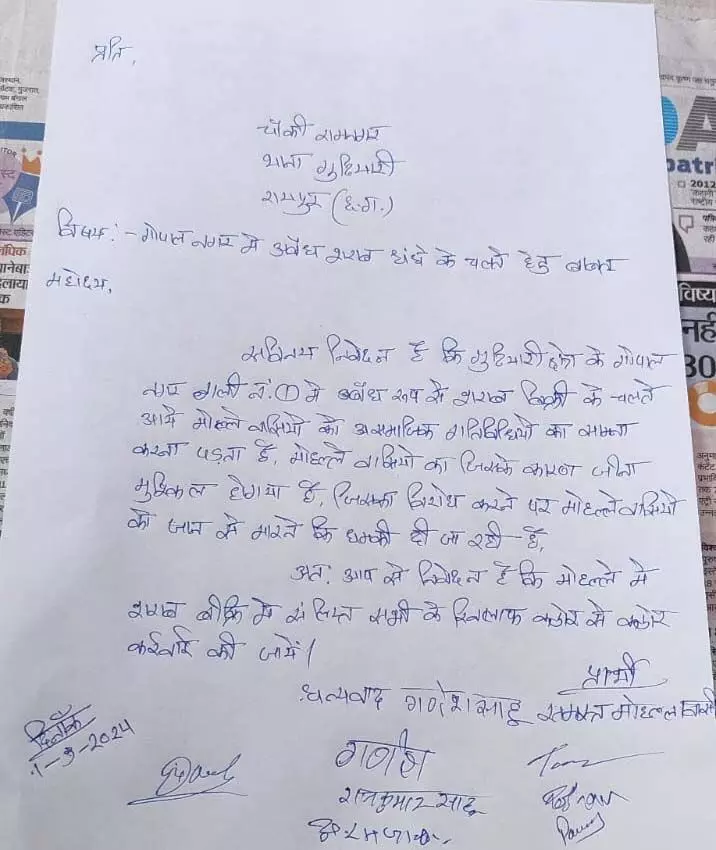 प्रति,
चौकी रामनगर
थाना गुढियारी
रायपुर (छ.ग.)
विषय:- गोपाल नगर मे अवैध शराब धंधे के चलते हेतु बाबत
महोदय,
सविनय निवेदन है कि गुढियारी क्षेत्र के गोपाल
नगर गली नं. (1) मे अवैध रूप से शराब बिक्री के चलते
आये मोहल्ले वासियो को असमाजिक गतिविधियो का सामना
करना पड़ता है, मोहल्ले वासियो का जिसके कारण जीना
मुश्किल होगया है, जिसका विरोध करने पर मोहल्ले वासियो
को जान से मारने कि धमकी दी जा रही है,
अत: आप से निवेदन है कि मोहल्ले मे
शराब बीक्रि मे संलिप्त सभी के खिलाफ कठोर से कठोर
कार्रवाई की जायें।
प्रार्थी
धन्यवाद गणेश साहू समस्त मोहल्ला वासी
दिनाँक
1-3-2024
गणेश
राजकुमार साहू
patr
2012
विष्य
नहीं
30